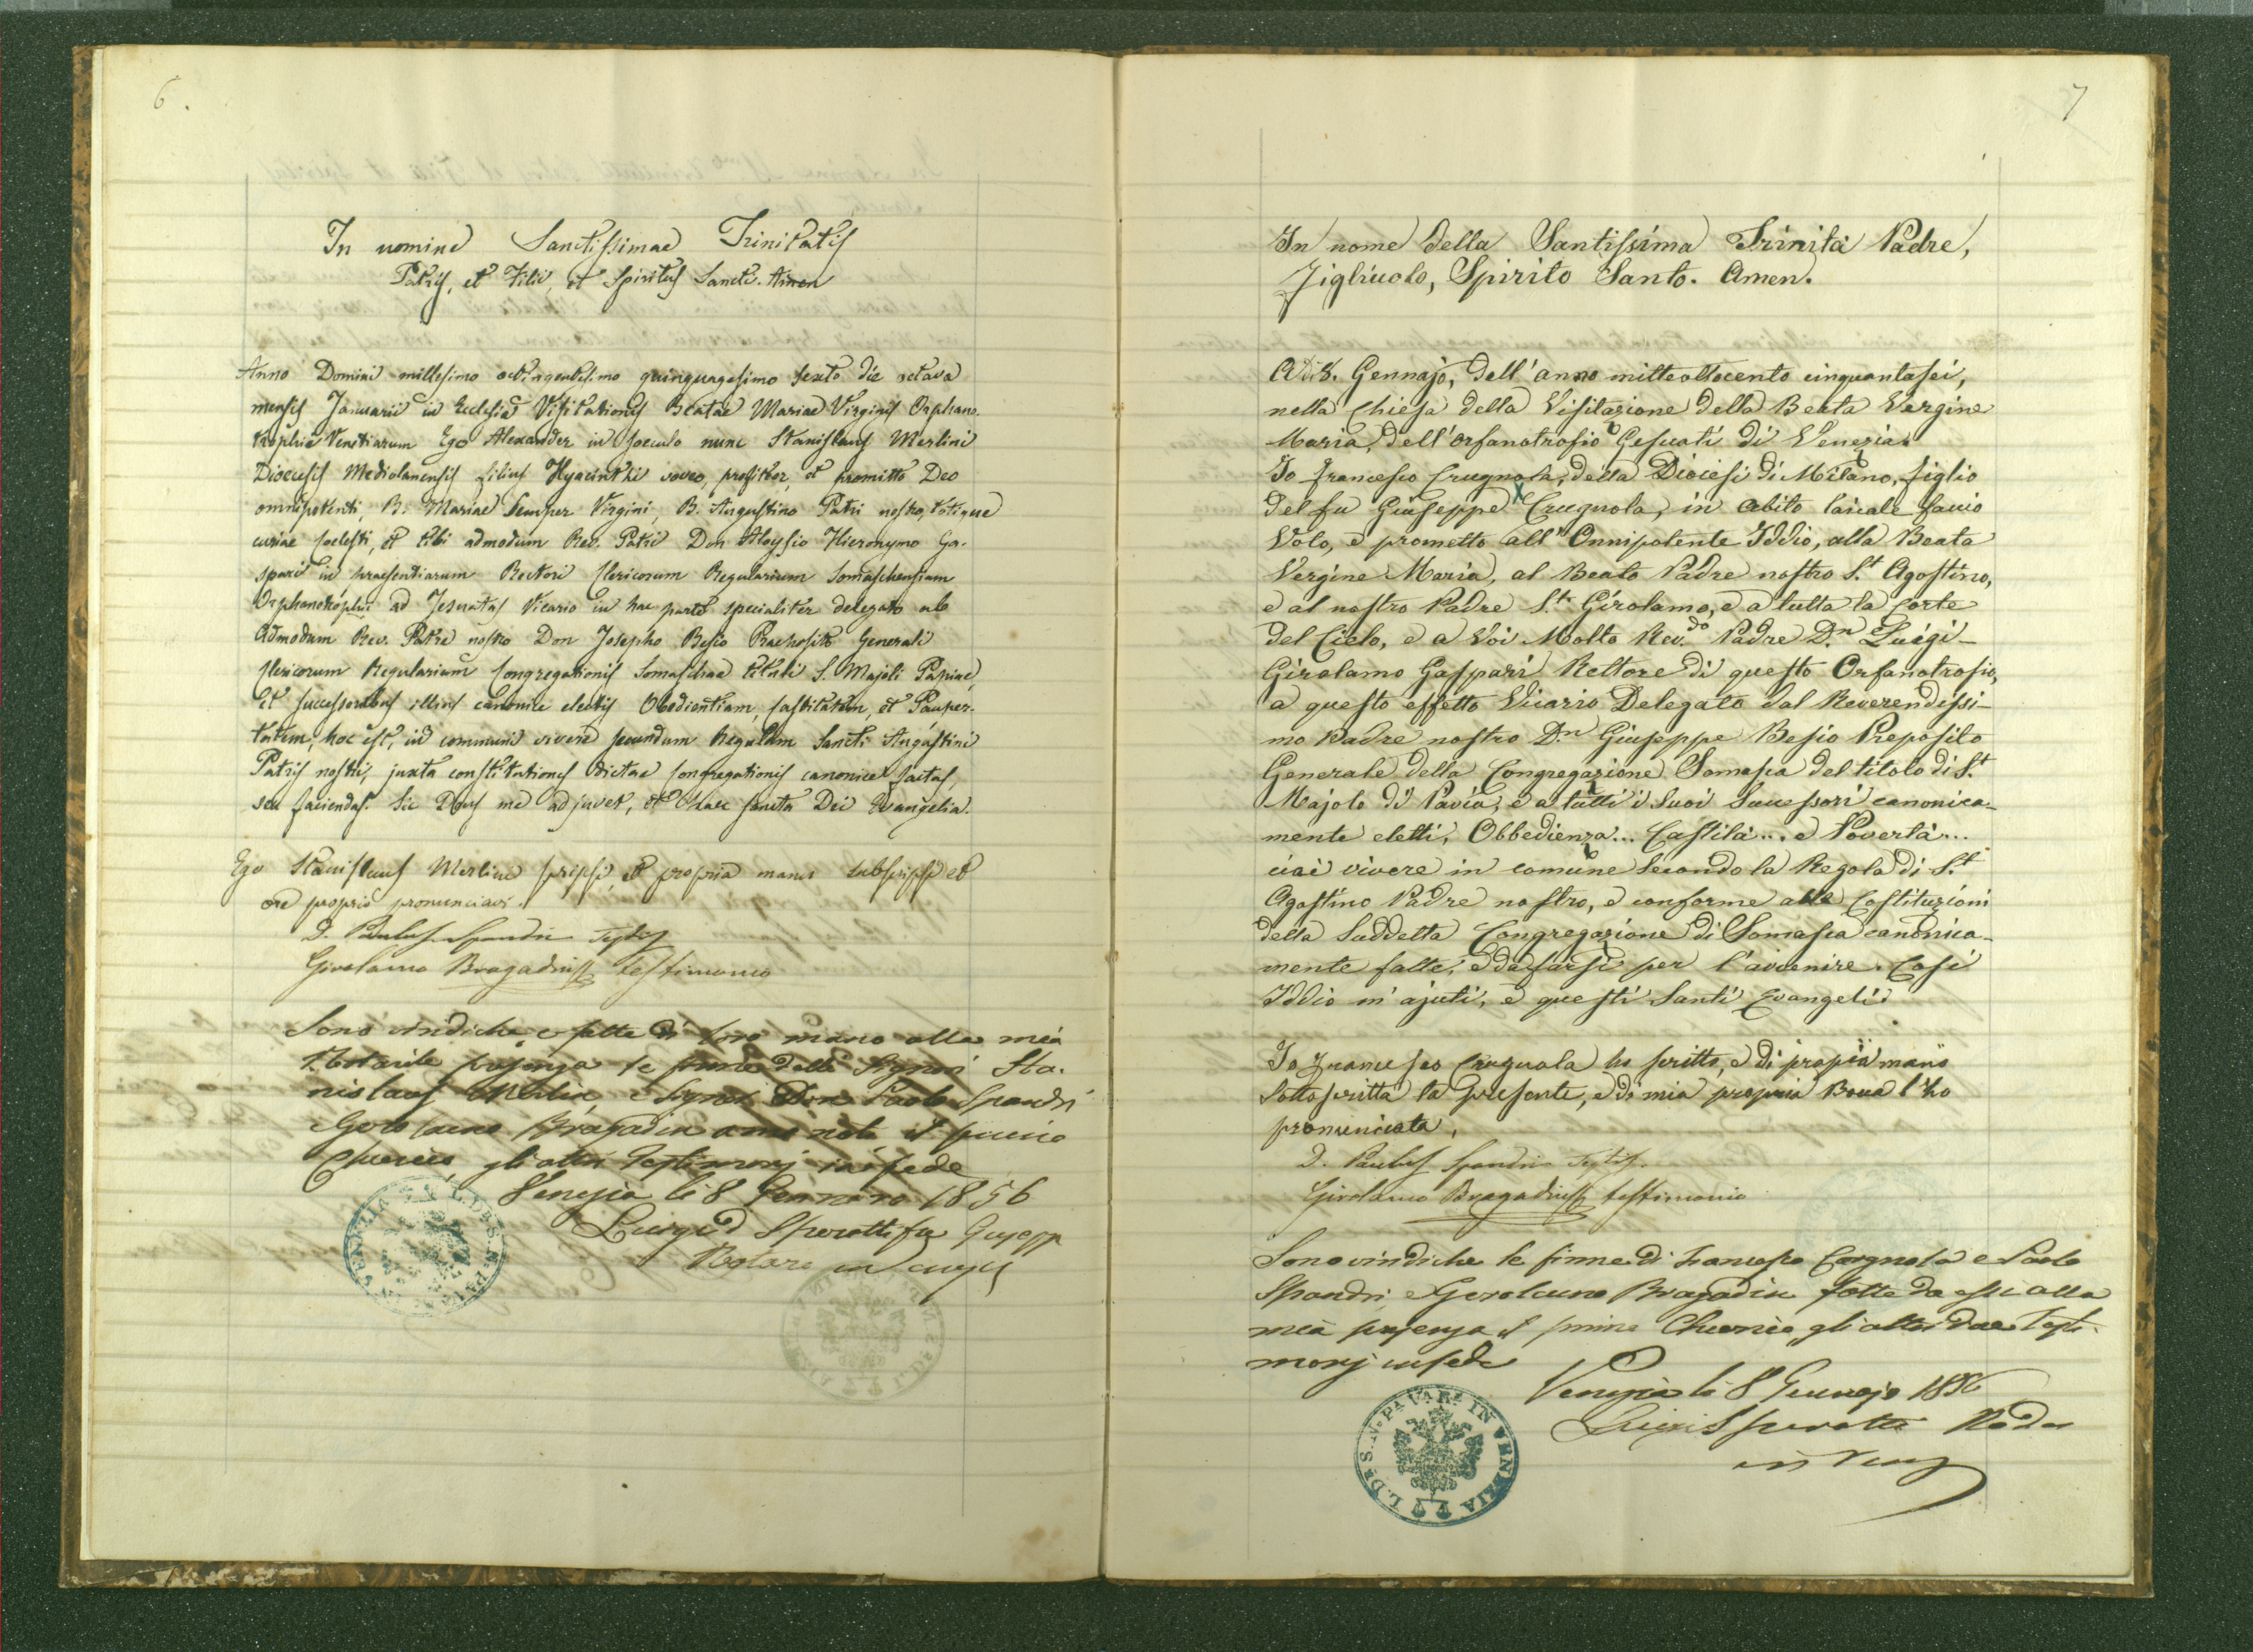 6.
In nomine Sanctissimae Trinitatis
Patris, et Filii, et Spiritus Sancti. Amen
Anno Domini millesimo octingentesimo quinquagesimo sexto die octava
mensis Januarii in Ecclesia Visitationis Beatae Mariae Virginis Orphano-
trophii Venetiarum Ego Alexander in saeculo nunc Stanislaus Merlini
Diocesis Mediolanensis filius Hyacinthi voveo, profiteor, et promitto Deo
omnipotenti, B. Mariae Semper Virgini, B. Augustino Patri nostro, totique
curiae coelesti, et tibi admodum Rev. Patri Don Aloysio Hieronymo Ga-
spari in praesentiarum Rectori Clericorum Regularium Somaschensium
Orphanotrophii ad Jesuatas Vicario in hac parte specialiter delegato ab
Admodum Rev. Patre nostro Don Josepho Besio Praeposito Generali
Clericorum Regularium Congregationis Somaschae tituli S. Majoli Papiae,
et successoribus illius canonice electis Obedientiam, Castitatem, et Pauper-
tatem, hoc est, in communi vivere secundum Regulam Sancti Augustini
Patris nostri, juxta constitutiones dictae Congregationis canonice factas,
seu faciendas. Sic Deus me adjuvet, et haec sancta Dei Evangelia.
Ego Stanislaus Merlini scripsi, et propria manu subscripsi et
ore proprio pronunciavi.
D. Paulus Spandri Testis
Girolamo Bragadin testimonio
Sono vindiche e fatte di loro mano alla mia
Notarile presenza le firme delli Signori Sta-
nislaus Merlin, e Signori Don Paolo Spandri
e Gerolamo Bragadin a me noti il primo
Chierico gli altri Testimonj in fede
Venezia li 8 Gennaro 1856
Luigi D Sperotti fu Giusepp
Notaro in
7
In nome della Santissima Trinità Padre,
Figliuolo, Spirito Santo. Amen.
Adi 8. Gennajo, dell'anno milleottocento cinquantasei,
nella Chiesa della Visitazione della Beata Vergine
Maria, dell'orfanotrofio Gesuati di Venezia.
Io Francesco Crugnola, della Diocesi di Milano, figlio
del fu Giuseppe Crugnola, in abito laicale faccio
Voto, e prometto all'Onnipotente Iddio, alla Beata
Vergine Maria, al Beato Padre nostro S.t Agostino,
e al nostro Padre S.t Girolamo, e a tutta la Corte
del Cielo, e a Voi Molto Rev.do Padre D.n Luigi
Girolamo Gaspari Rettore di questo Orfanotrofio,
a questo effetto Vicario Delegato dal Reverendissi-
mo Padre nostro D.n Giuseppe Besio Preposito
Generale della Congregazione Somasca del titolo di S.t
Majolo di Pavia, e a tutti i suoi Successori canonica-
mente eletti, Obbedienza... Castità... e Povertà...
cioè vivere in comune secondo la Regola di S.t
Agostino Padre nostro, e conforme alle Costituzioni
della Suddetta Congregazione di Somasca canonica-
mente fatte, e da farsi per l'avvenire. Così
Iddio m'ajuti, e questi Santi Evangeli.
Io Francesco Crugnola ho scritto, e di propia mano
sottoscritta la presente, e di mia propria Bocca l'ho
pronunciata.
D. Paulus Spandri Testis.
Girolamo Bragadin testimonio
Sono vindiche le firme di Francesco Crugnola e Paolo
Spandri e Gerolamo Bragadin fatte da essi alla
mia presenza il primo Chierico gli altri due Testi-
monj in fede
Venezia li 8 Gennajo 1856
Luigi Sperotti
VENEZIA
IN VENEZIA